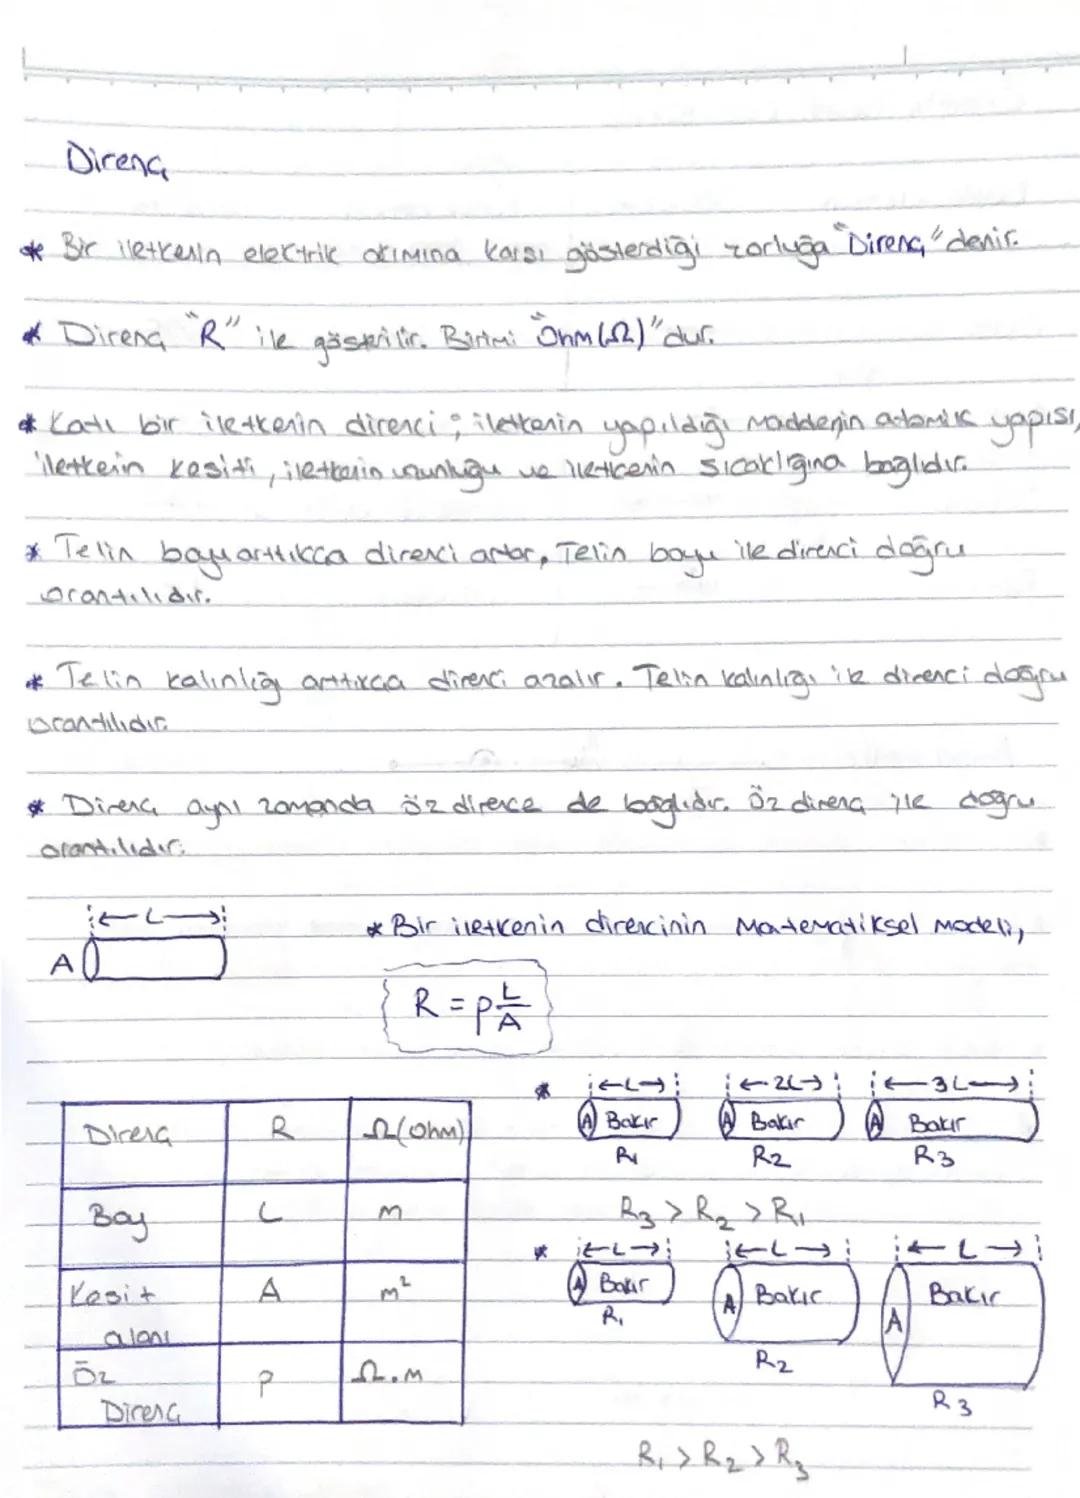 Direnç
* Bir iletkenin elektrik akımına karşı gösterdiği zorluğa "Direnç" denir.
* Direnç "R" ile gösterilir. Birimi "Ohm (Ω)" dur.
* Katı bir iletkenin direnci; iletkenin yapıldığı maddenin atomik yapısı,
iletkenin kesiti, iletkenin uzunluğu ve iletkenin sıcaklığına bağlıdır.
* Telin boyu arttıkça direnci artar, Telin boyu ile direnci doğru
orantılıdır.
* Telin kalınlığı arttıkça direnci azalır. Telin kalınlığı ile direnci doğru
orantılıdır.
* Direnç aynı zamanda öz dirence de bağlıdır. Öz direnç ile doğru
orantılıdır.
L
A
* Bir iletkenin direncinin Matematiksel modeli,
R = ρ L/A
Direnç R Ω(Ohm)
Boy L m
Kesit alanı A m²
Öz Direnç ρ Ω.m
* L 2L 3L
A Bakır A Bakır A Bakır
R1 R2 R3
R3 > R2 > R1
* L L L
A Bakır A Bakır A Bakır
R1 R2 R3
R1 > R2 > R3